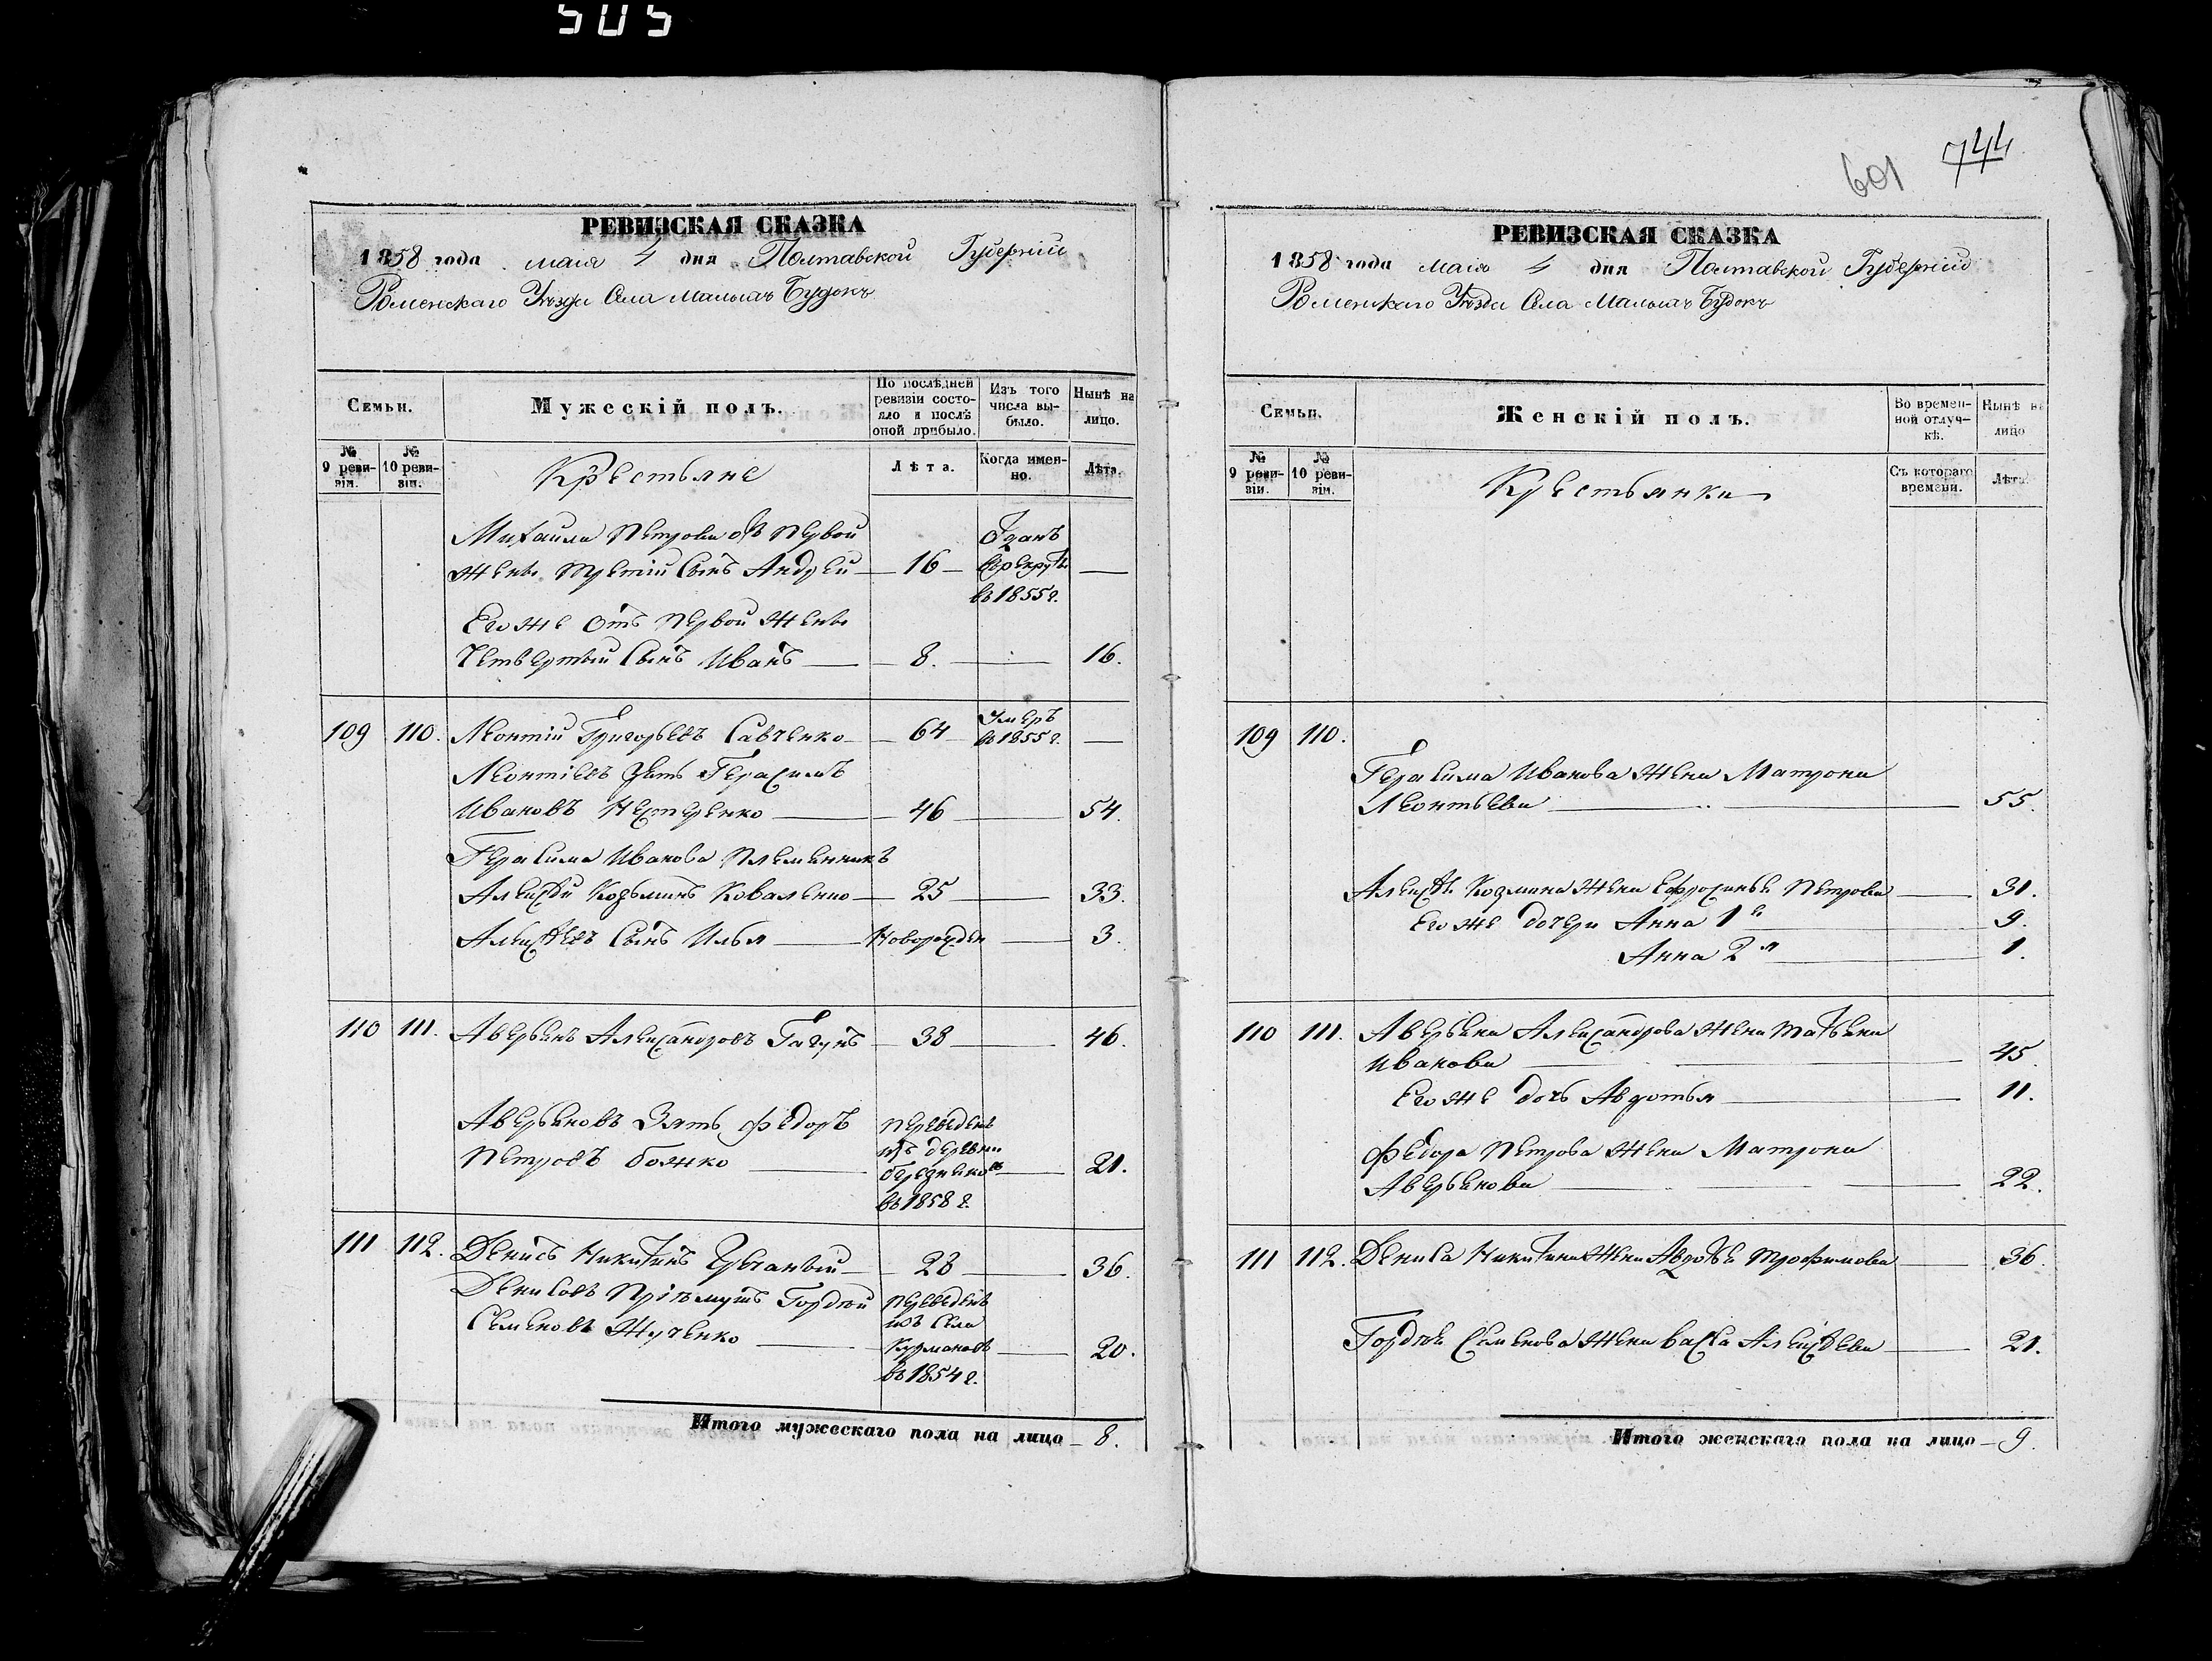 505
РЕВИЗСКАЯ СКАЗКА
1858 года маія 4 дня Полтавской Губерніи
Роменскаго Уѣзда Села Малыхъ Будокъ
Семьи.
Мужескій полъ.
По послѣдней ревизіи состояло и послѣ оной прибыло.
Изъ того числа выбыло.
Нынѣ на лицо.
№ 9 ревизіи.
№ 10 ревизіи.
Крестьяне
Лѣта.
Когда именно.
Лѣта.
Михайла Петрова отъ первой
Отданъ
жены третій Сынъ Андрей 16
въ рекруты
въ 1855 г.
Его же отъ первой жены
Четвертый Сынъ Иванъ 8. 16.
109 110. Леонтій Григорьевъ Савченко 64
Умеръ
въ 1855 г.
Леонтіевъ зять Герасимъ
Ивановъ Нестеренко 46 54.
Герасима Иванова племенникъ
Алексѣй Козьминъ Коваленко 25 33.
Алексѣевъ Сынъ Илья Новорожден 3.
110 111. Аверьянъ Александровъ Гагунъ 38 46.
Аверьяновъ Зять Федоръ
Петровъ Божко 21.
переведенъ
изъ деревни
въ 1858 г.
111 112. Денисъ Никитинъ 28 36.
Денисовъ Пріемышъ Гордѣй
Семеновъ Жученко 20.
переведенъ
изъ Села
въ 1854 г.
Итого мужескаго пола на лицо 8.
601 744
РЕВИЗСКАЯ СКАЗКА
1858 года маія 4 дня Полтавской Губерніи
Роменскаго Уѣзда Села Малыхъ Будокъ
Семьи.
Женскій полъ.
Во временной отлучкѣ.
Нынѣ на лицо
№ 9 ревизіи.
№ 10 ревизіи.
Крестьянки
Съ котораго времени.
Лѣта.
109 110.
Герасима Иванова жена Матрона
Леонтьева 55.
Алексѣя Козмина жена Ефросинья Петрова 31.
Его же дочери Анна 1я 9.
Анна 2я 1.
110 111. Аверьяна Александрова жена Татьяна
Иванова 45.
Его же дочь Авдотья 11.
Федора Петрова жена Матрона
Аверьянова 22.
111 112. Дениса Никитина жена Авдотья Трофимова 36.
Гордѣя Семенова жена Васса Алексѣева 21.
Итого женскаго пола на лицо 9.